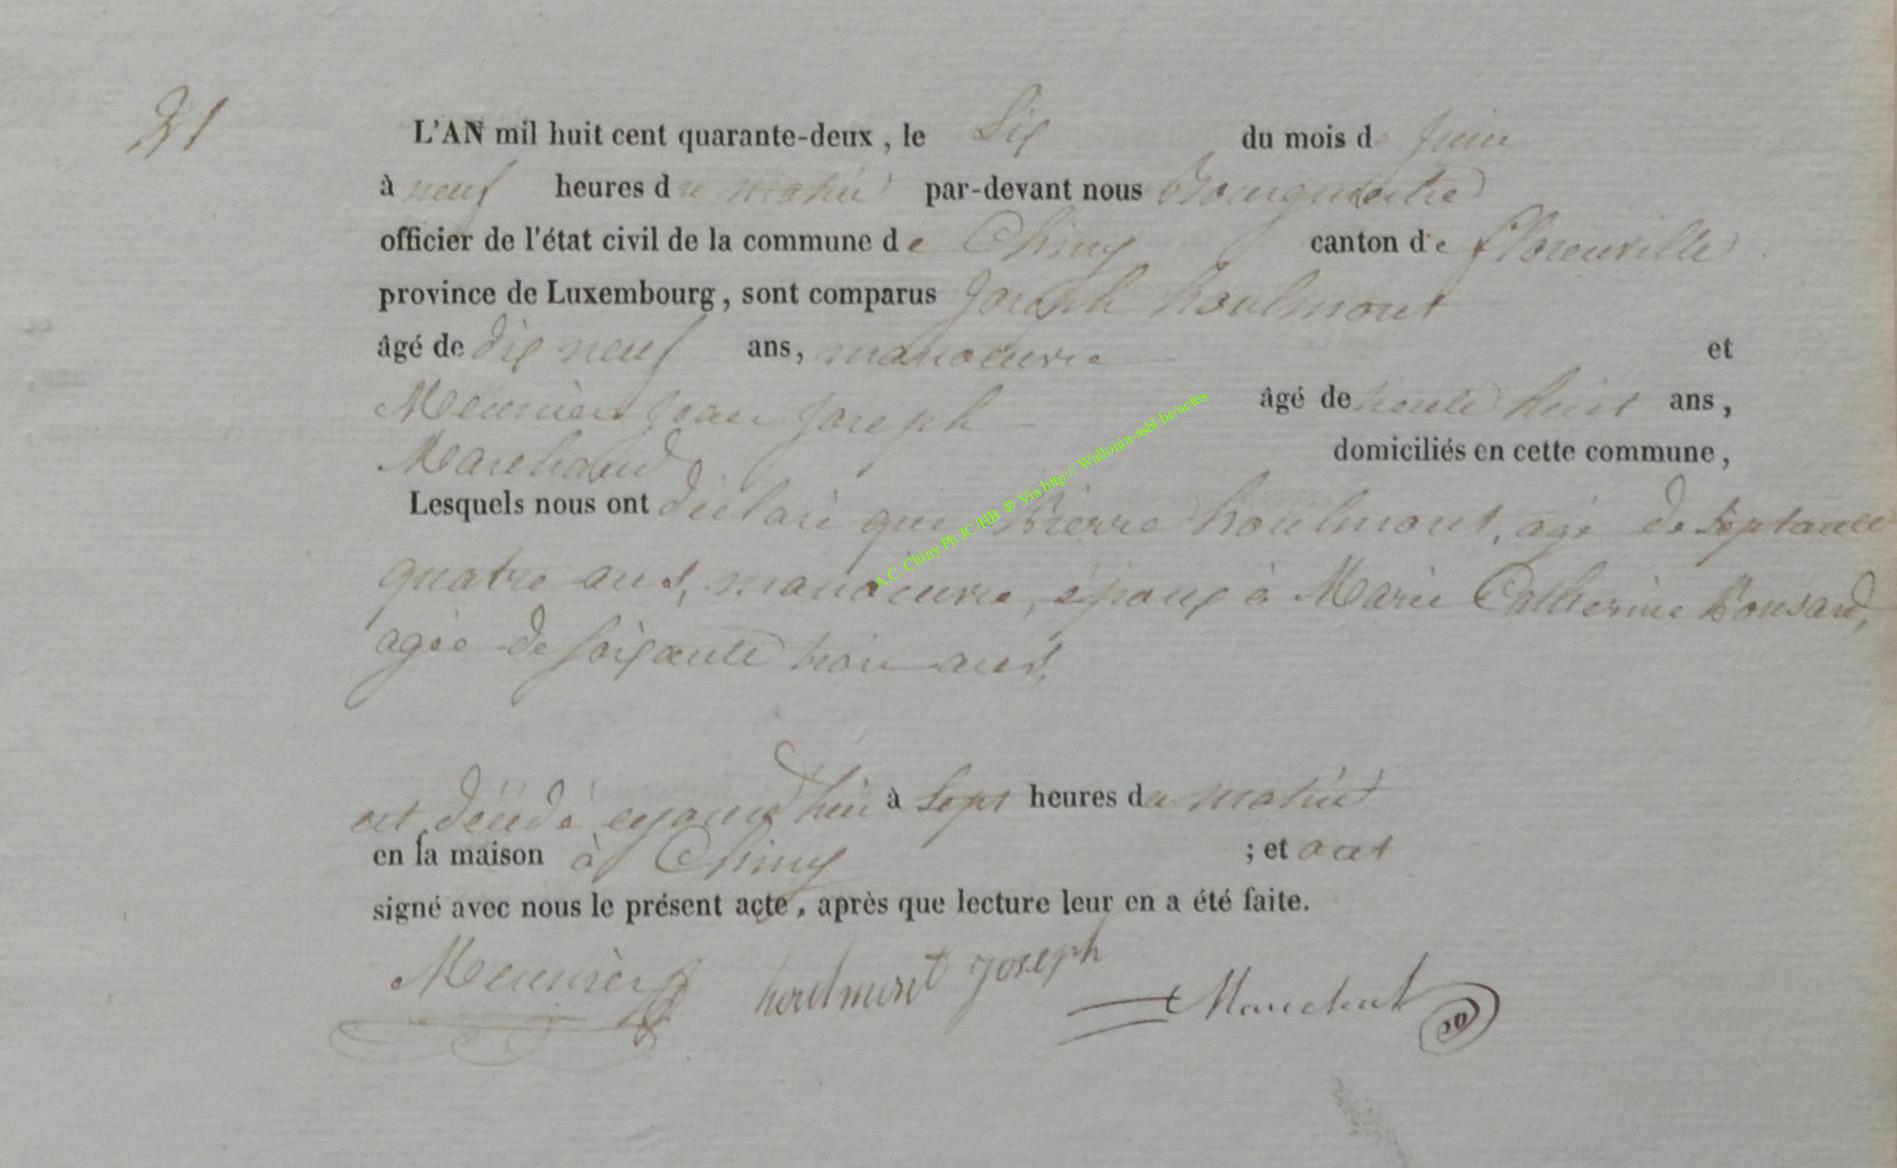 31
L'AN mil huit cent quarante-deux, le Six du mois de Juin
à neuf heures du matin par-devant nous Bourguemestre
officier de l'état civil de la commune de Chiny canton de florenville
province de Luxembourg, sont comparus Joseph houlmont
âgé de dix neuf ans, manoeuvre et
Meunier Jean Joseph âgé de trente huit ans,
Marchand domiciliés en cette commune,
Lesquels nous ont déclaré que Pierre houlmont, agé de Septante
quatre ans, manoeuvre, époux à Marie Catherine Ponsard,
agée de soixante trois ans,
est décédé aujourd'hui à Sept heures du matin
en sa maison à Chiny ; et ont
signé avec nous le présent acte, après que lecture leur en a été faite.
Meunier houlmont Joseph
A.C. Chiny Ph JC/HB ® Via http:// Wallonia-asbl.be/actes